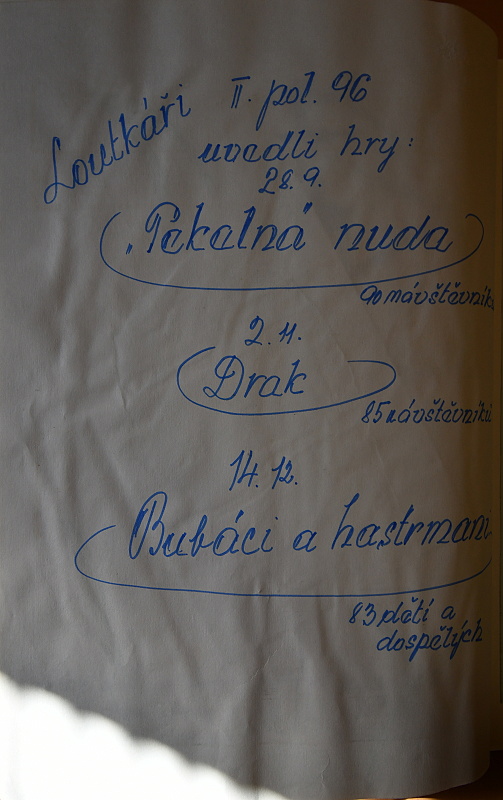 Loutkáři II. pol. 96
uvedli hry:
28.9.
„Pekelná" nuda
90 návštěvníků
2. 11.
Drak
85 návštěvníků
14. 12.
Bubáci a hastrmani
83 dětí a
dospělých